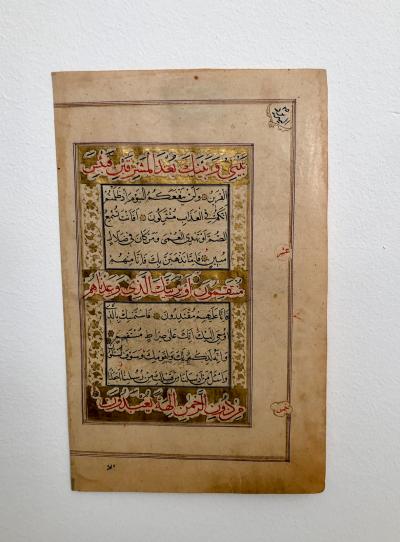 بَيْنِي وَبَيْنَكَ بُعْدَ الْمَشْرِقَيْنِ فَبِئْسَ
الْقَرِينُ وَلَنْ يَنْفَعَكُمُ الْيَوْمَ اِذْ ظَلَمْتُمْ
اَنَّكُمْ فِي الْعَذَابِ مُشْتَرِكُونَ اَفَاَنْتَ تُسْمِعُ
الصُّمَّ اَوْ تَهْدِي الْعُمْيَ وَمَنْ كَانَ فِي ضَلَالٍ
مُبِينٍ فَاِمَّا نَذْهَبَنَّ بِكَ فَاِنَّا مِنْهُمْ
مُنْتَقِمُونَ اَوْ نُرِيَنَّكَ الَّذِي وَعَدْنَاهُمْ
فَاِنَّا عَلَيْهِمْ مُقْتَدِرُونَ فَاسْتَمْسِكْ بِالَّذِي
اُوحِيَ اِلَيْكَ اِنَّكَ عَلَى صِرَاطٍ مُسْتَقِيمٍ
وَاِنَّهُ لَذِكْرٌ لَكَ وَلِقَوْمِكَ وَسَوْفَ تُسْئَلُونَ
وَاسْئَلْ مَنْ اَرْسَلْنَا مِنْ قَبْلِكَ مِنْ رُسُلِنَا اَجَعَلْنَا
مِنْ دُونِ الرَّحْمَنِ اٰلِهَةً يُعْبَدُونَ
عشر
خمس